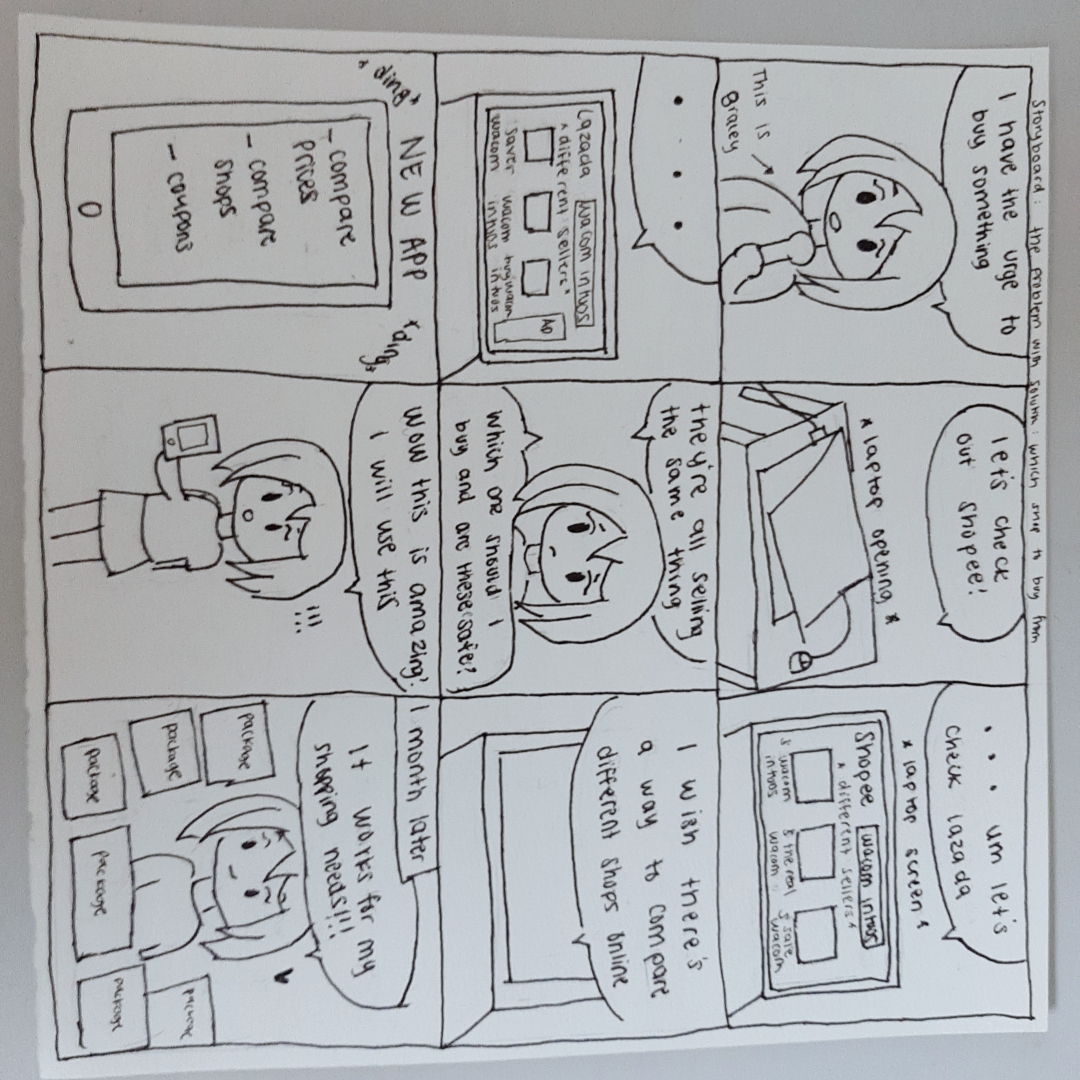 Storyboard: the problem with solution: which shop to buy from
I have the urge to
buy something
This is
Graley
let's check
out shopee!
* laptop opening *
. . . um let's
check lazada
* laptop screen *
Shopee wacom intuos
* different sellers *
$ wacom
intuos
$ the real
wacom
$ safe
wacom
. . .
Lazada wacom intuos
* different sellers *
AD
saver
wacom
wacom
intuos
buy wacom
intuos
they're all selling
the same thing
which one should I
buy and are these safe?
I wish there's
a way to compare
different shops online
*ding*
NEW APP
*ding*
- compare
prices
- compare
shops
- coupons
Wow this is amazing!
I will use this
!!!
1 month later
It works for my
shopping needs!!!
package
package
package
package
package
package